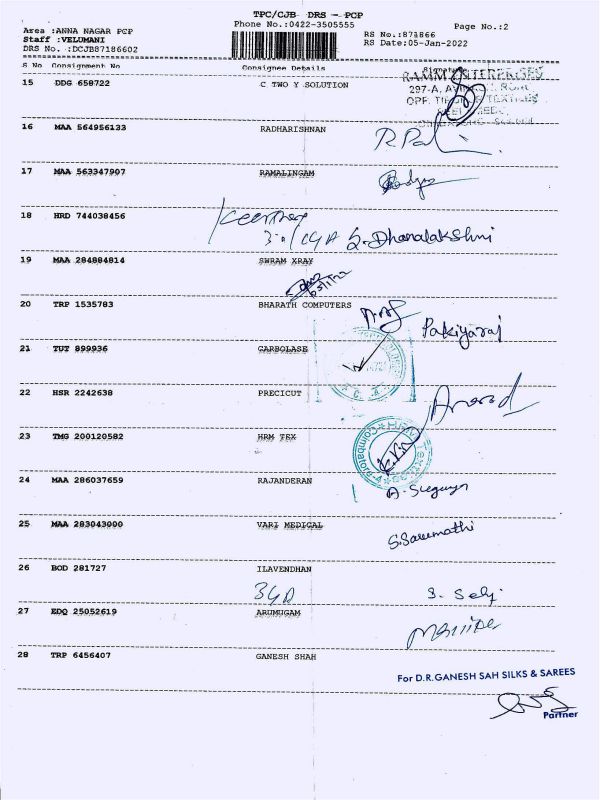 TPC/CJB DRS - PCP
Phone No.:0422-3505555
Page No.:2
Area :ANNA NAGAR PCP
Staff :VELUMANI
DRS No. :DCJB87186602
RS No.:871866
RS Date:05-Jan-2022
S No Consignment No Consignee Details
15 DDG 658722 C TWO Y SOLUTION
297-A,
16 MAA 564956133 RADHARISHNAN
17 MAA 563347907 RAMALINGAM
18 HRD 744038456
S. Dhanalakshmi
19 MAA 284884814 SWRAM XRAY
20 TRP 1535783 BHARATH COMPUTERS
Pakiyaraj
21 TUT 899936 CARBOLASE
22 HSR 2242638 PRECICUT
Anand
23 TMG 200120582 HRM TEX
24 MAA 286037659 RAJANDERAN
25 MAA 283043000 VARI MEDICAL
S.Sarumathi
26 BOD 281727 ILAVENDHAN
27 EDQ 25052619 ARUMUGAM
28 TRP 6456407 GANESH SHAH
For D.R.GANESH SAH SILKS & SAREES
Partner